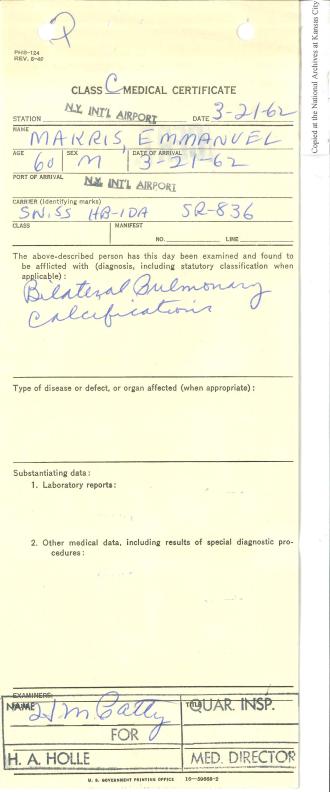 P
PHS-124
REV. 8-40
CLASS C MEDICAL CERTIFICATE
STATION N.Y. INT'L AIRPORT DATE 3-21-62
NAME
MAKRIS, EMMANUEL
AGE SEX DATE OF ARRIVAL
60 M 3-21-62
PORT OF ARRIVAL N.Y. INT'L AIRPORT
CARRIER (Identifying marks)
SWISS HB-IDA SR-836
CLASS MANIFEST
NO. LINE
The above-described person has this day been examined and found to
be afflicted with (diagnosis, including statutory classification when
applicable):
Bilateral Pulmonary
Calcifications
Type of disease or defect, or organ affected (when appropriate):
Substantiating data:
1. Laboratory reports:
2. Other medical data, including results of special diagnostic pro-
cedures:
EXAMINERS:
NAME TITLE QUAR. INSP.
FOR
H. A. HOLLE MED. DIRECTOR
U. S. GOVERNMENT PRINTING OFFICE 16—29688-2
Copied at the National Archives at Kansas City